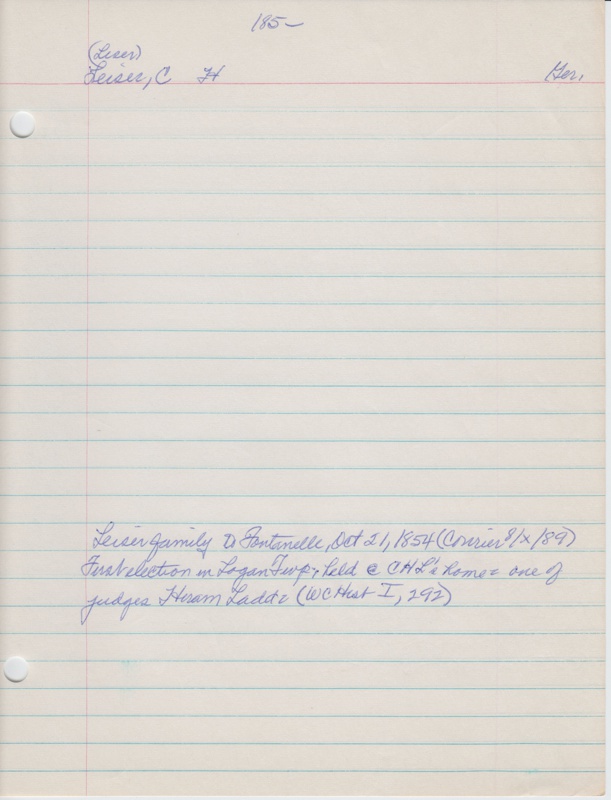 185-
(Leser)
Leiser, C H Ger.
Leiser family to Fontanelle, Oct 21, 1854 (Courier 8/x/89)
First election in Logan Twp, held @ C H L's home = one of
judges Hiram Ladd = (WC Hist I, 292)